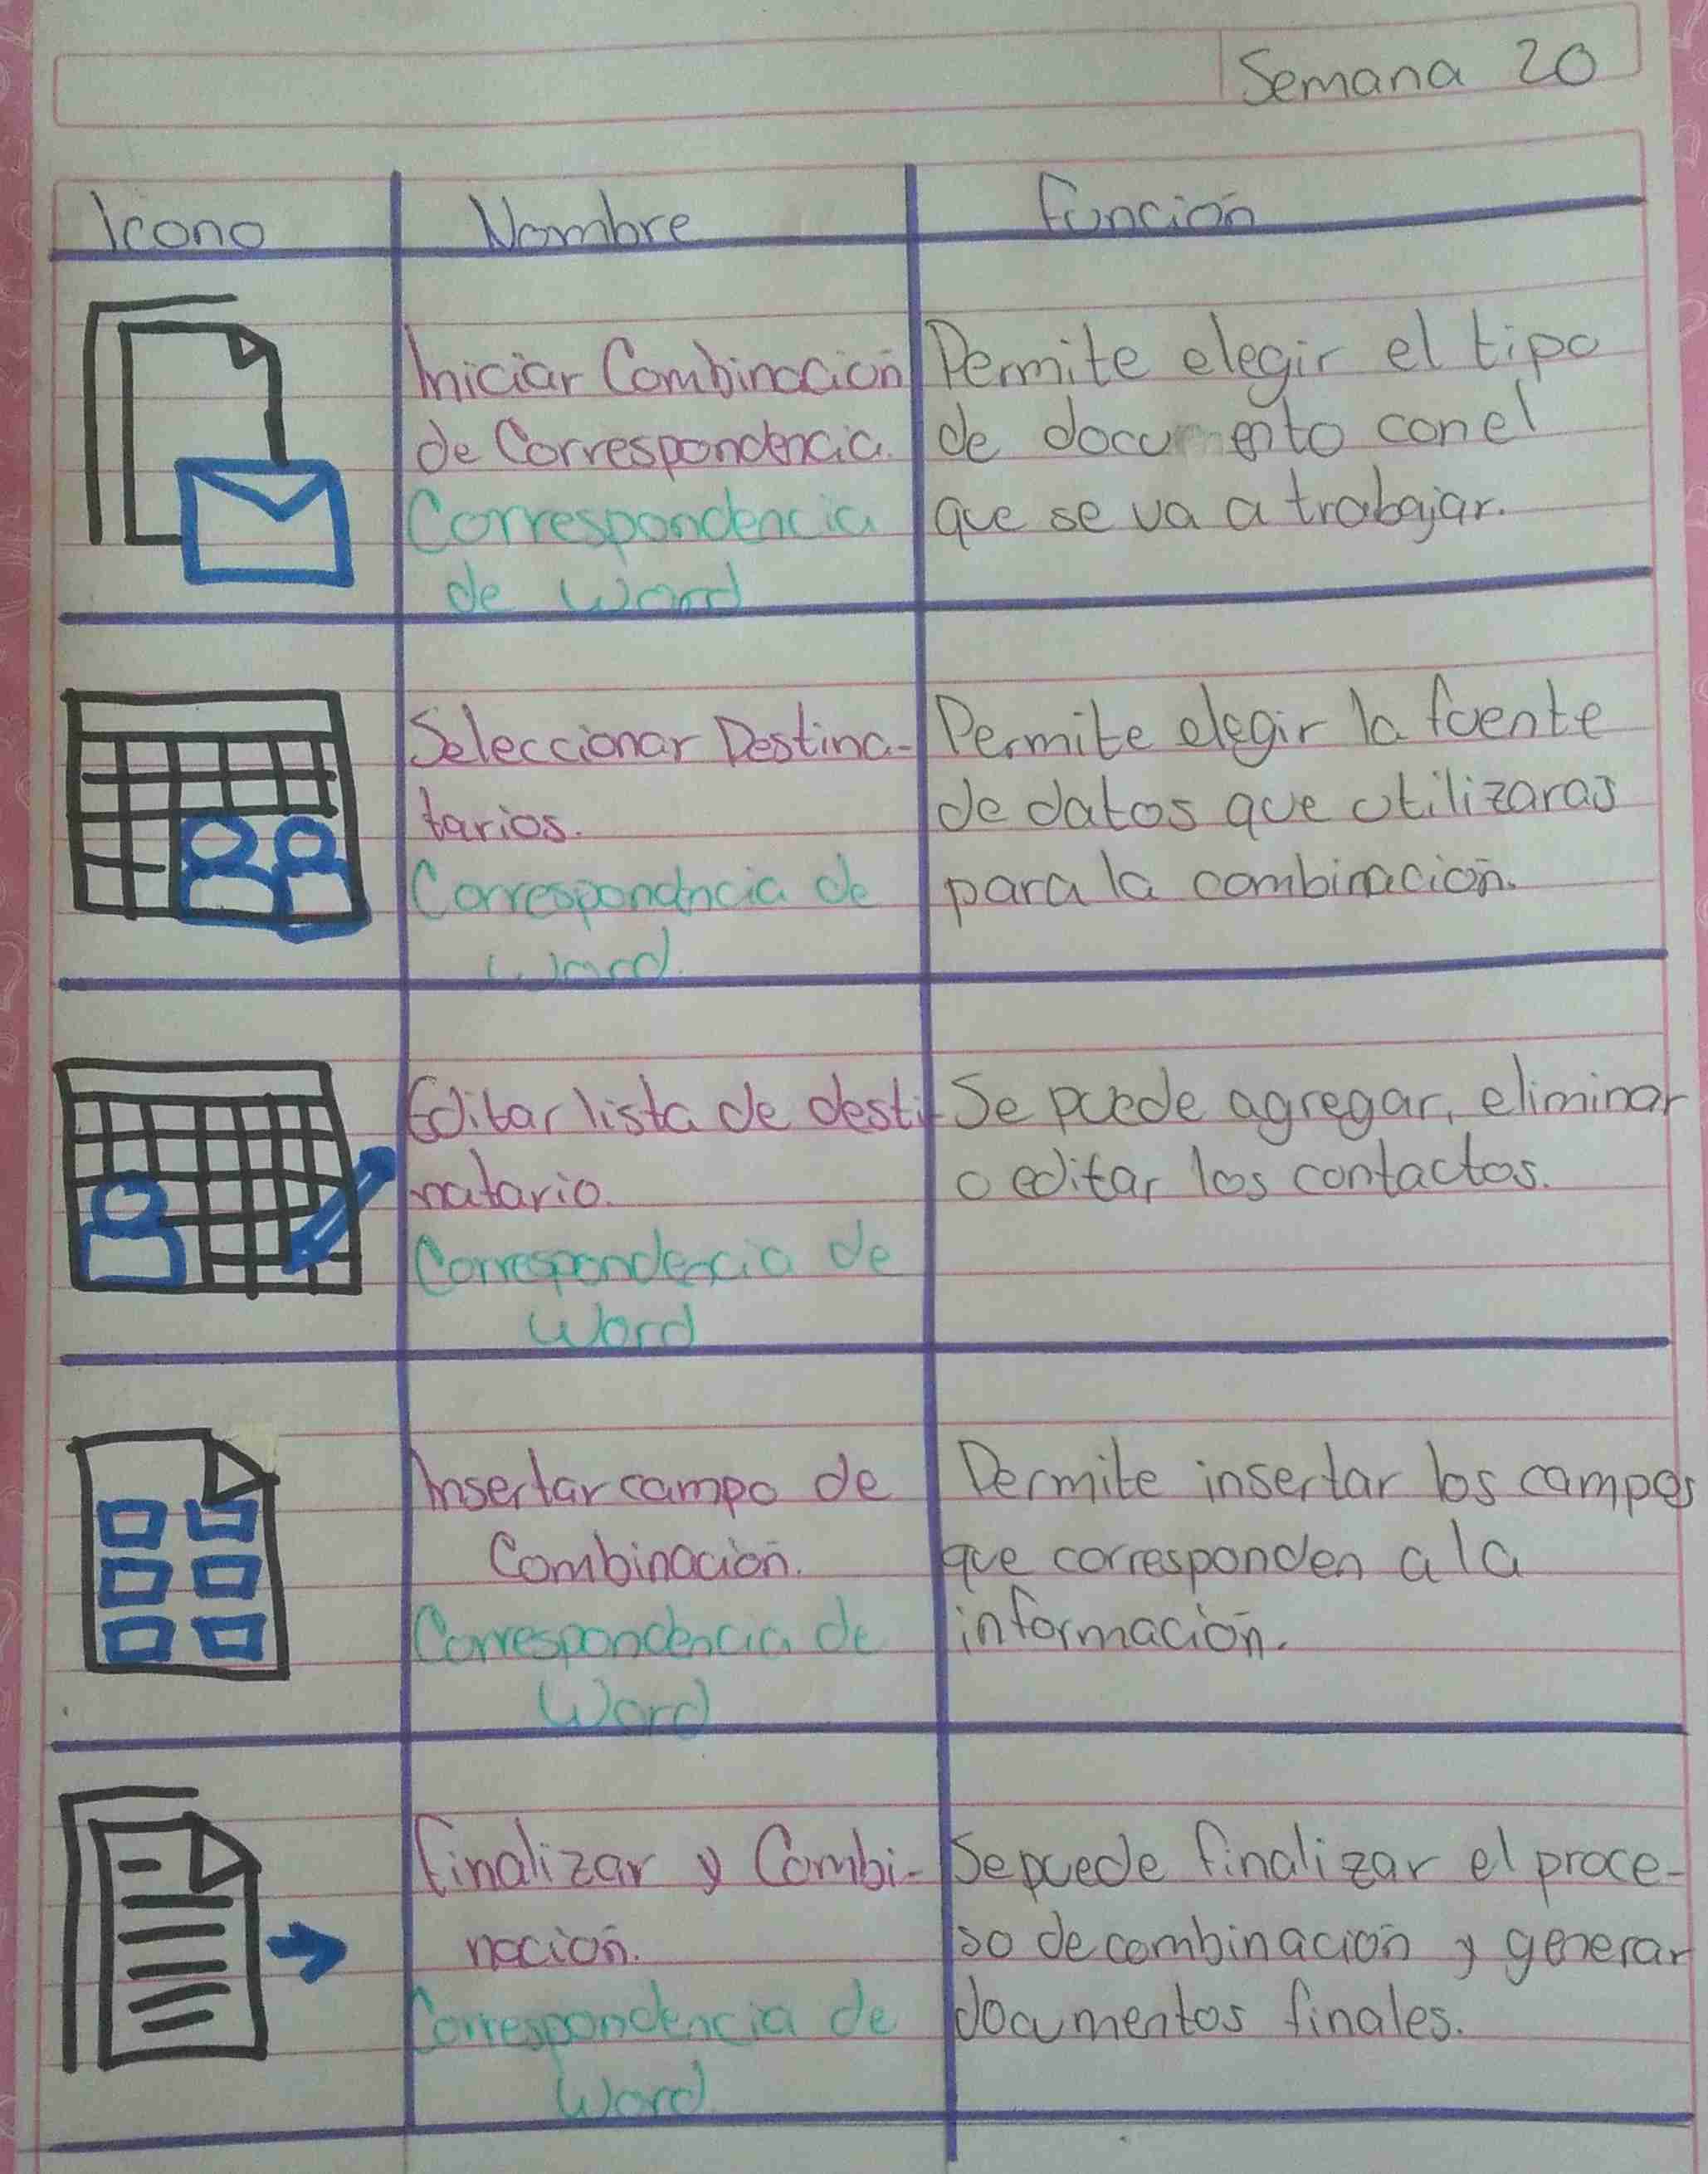 Semana 20
Icono
Nombre
Función
Iniciar Combinación
de Correspondencia.
Correspondencia
de Word
Permite elegir el tipo
de documento con el
que se va a trabajar.
Seleccionar Destina-
tarios.
Correspondncia de
Word.
Permite elegir la fuente
de datos que utilizaras
para la combinación.
Editar lista de desti-
natario.
Correspondencia de
Word
Se puede agregar, eliminar
o editar los contactos.
Insertar campo de
Combinación.
Correspondencia de
Word
Permite insertar los campos
que corresponden a la
información.
Finalizar y Combi-
nación.
Correspondencia de
Word
Se puede finalizar el proce-
so de combinación y generar
documentos finales.